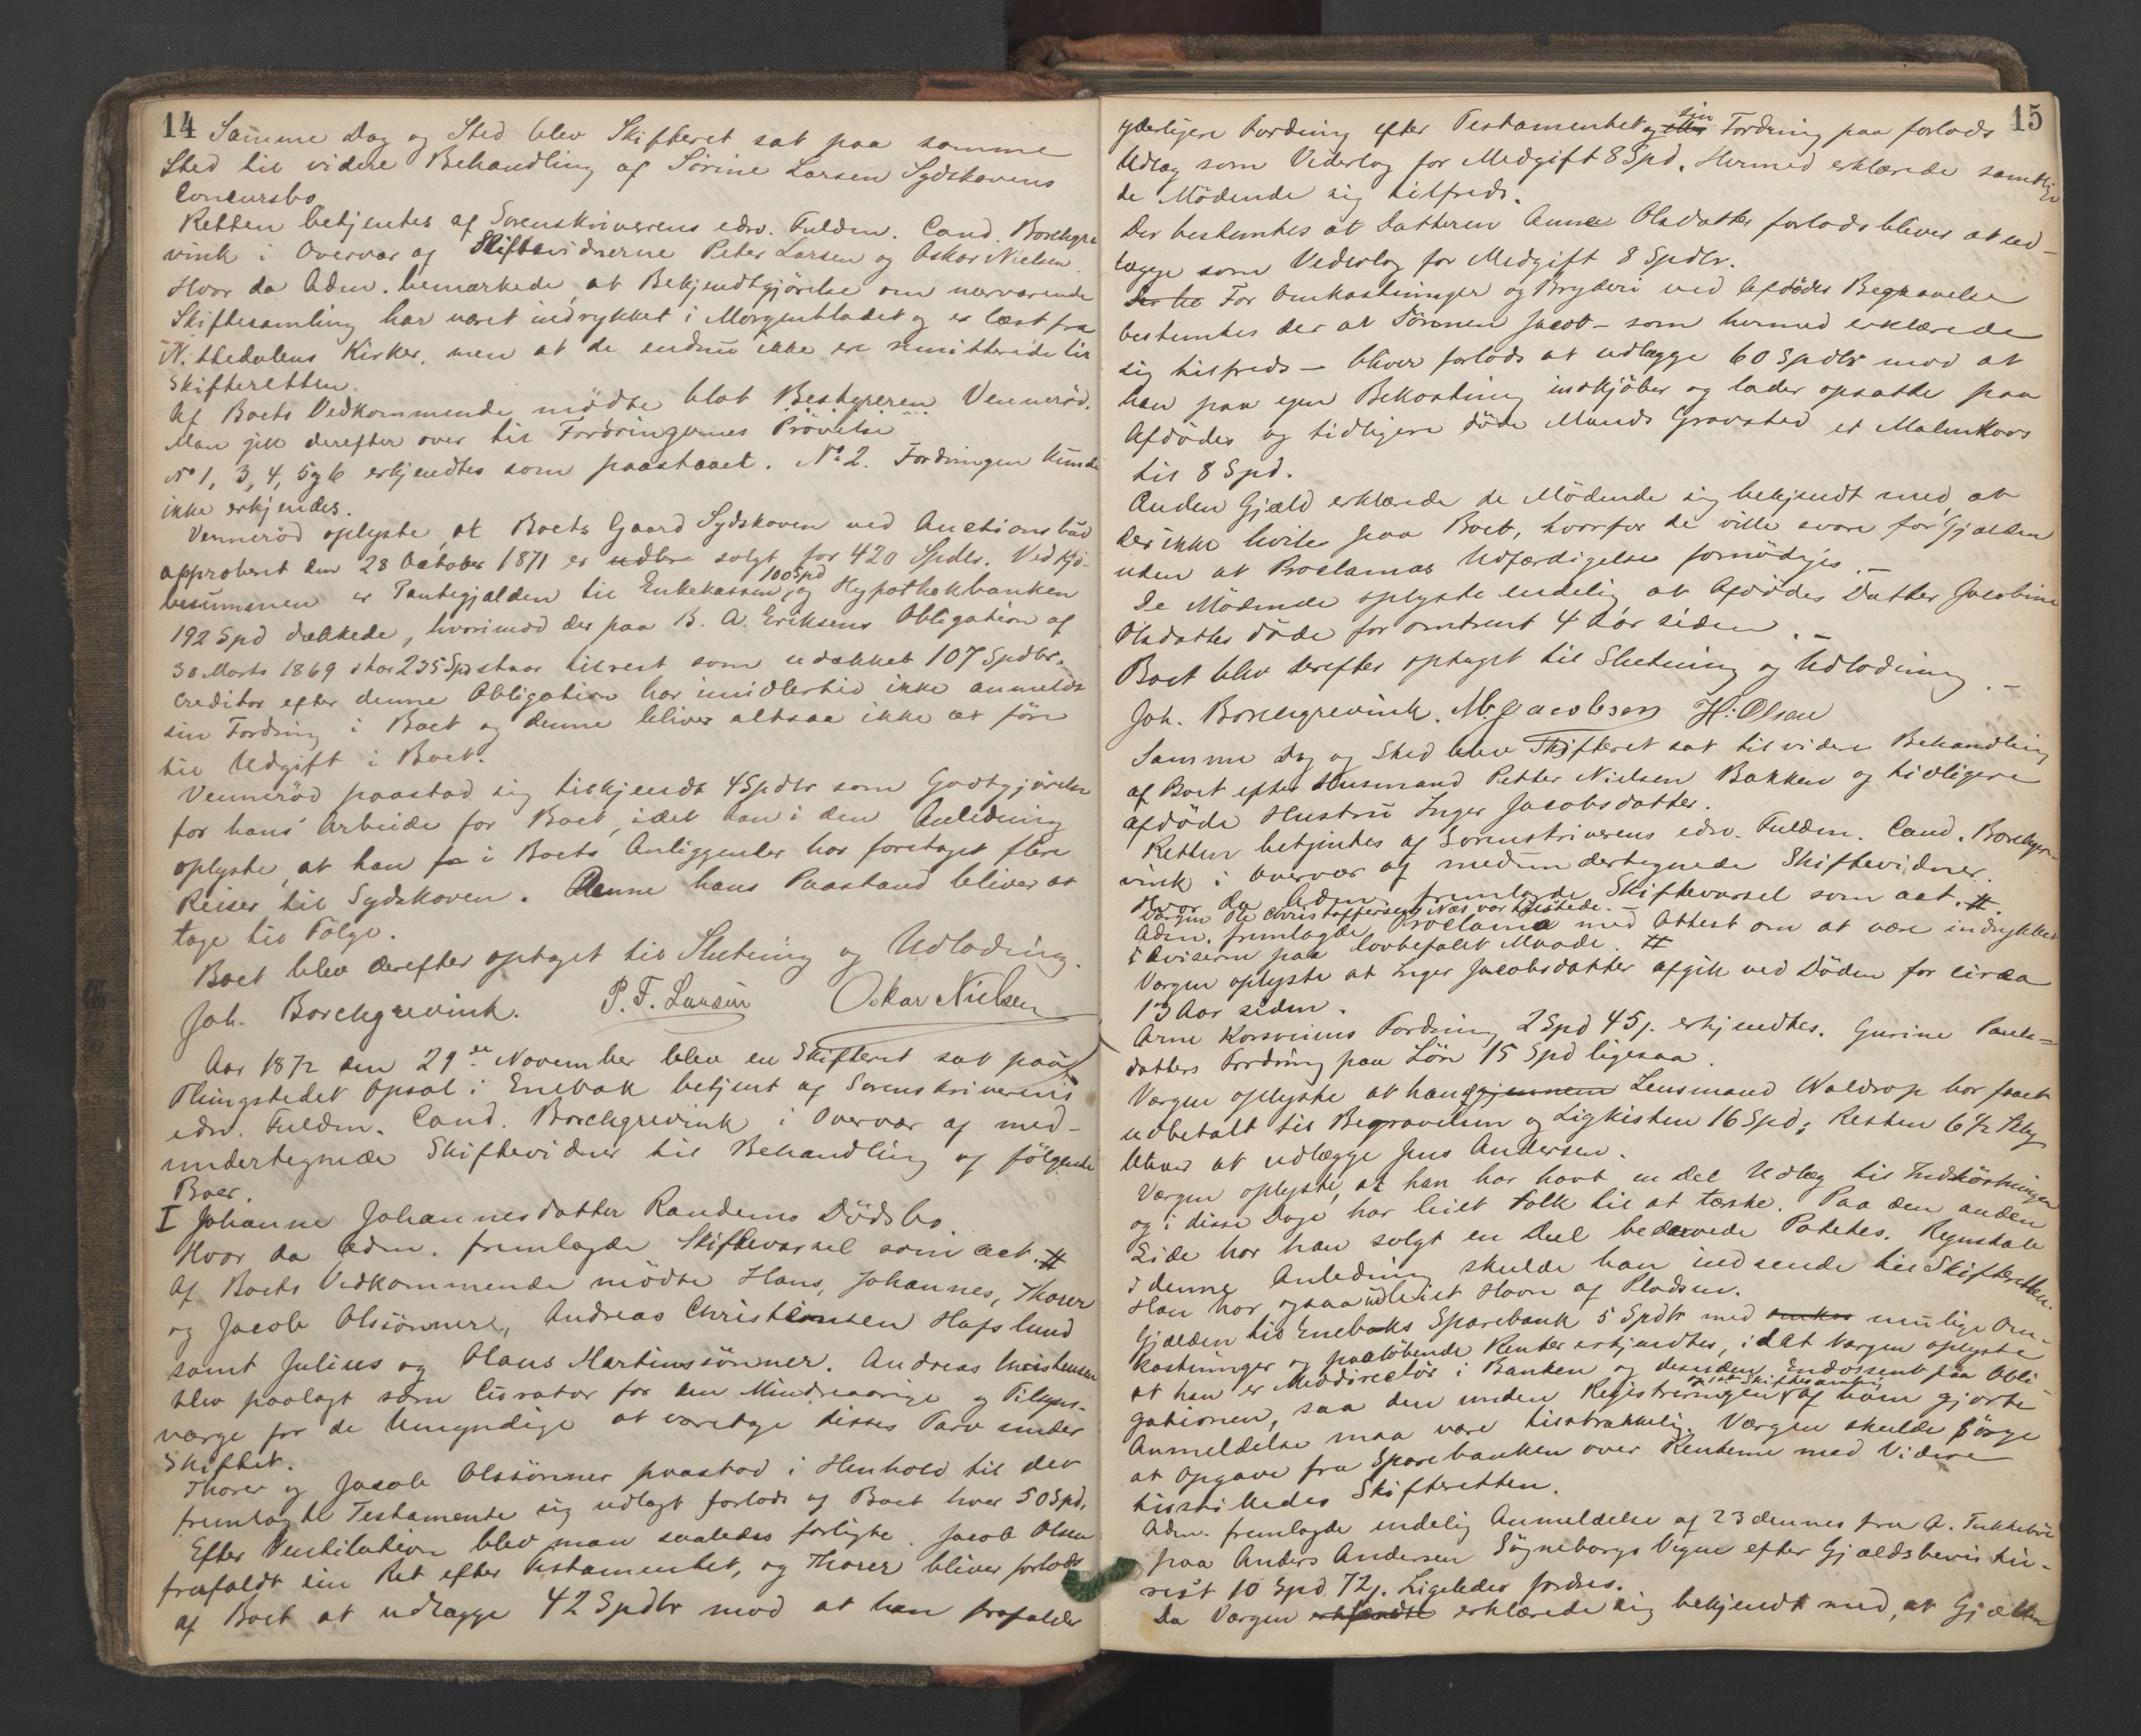 14
Samme Dag og Sted blev Skifteret sat paa samme
Sted til videre Behandling af Sörine Larsen Sydskovens
Concursbo
Retten betjentes af Sorenskriverens edsv. Fuldm. Cand. Borchgre
vink i Overvær af Skiftevidnerne Peter Larsen og Oskar Nielsen.
Hvor da Adm. bemærkede, at Bekjendtgjörelse om nærværende
Skiftesamling har været indrykket i Morgenbladet og er læst fra
Nittedalens Kirker, men at de endnu ikke ere remitterede til
Skifteretten.
Af Boets Vedkommende mödte blot Bestyreren Vennröd.
Man gik derefter over til Fordringernes Prövelse
No 1, 3, 4, 5 og 6 erkjendtes som paastaaet. No 2. Fordringen kunde
ikke erkjendes.
Venneröd oplyste, at Boets Gaard Sydskoven ved Auctionsbud
approberet den 28 October 1871 er udbr solgt for 420 Spdlr. Ved Kjö-
besummen er Pantegjælden til Enkekassen 100 Spd og Hypothekbanken
192 Spd dækkede, hvorimod der paa B. A. Eriksens Obligation af
30 Marts 1869 stor 235 Spd staar tilrest som udækket 107 Spdlr.
Creditor efter denne Obligation har imidlertid ikke anmeldt
sin Fordring i Boet og denne bliver altsaa ikke at före
til Udgift i Boet.
Venneröd paastod sig tilkjendt 4 Spdlr som Godtgjörelse
for hans Arbeide for Boet, idet han i den Anledning
oplyste, at han fo i Boets Anliggender har foretaget flere
Reiser til Sydskoven. Denne hans Paastand bliver at
tage til Fölge.
Boet blev derefter optaget til Slutning og Udlodning.
Joh. Borchgrevink. P. F. Larsen Oskar Nielsen
Aar 1872 den 29de November blev en Skifteret sat paa
Thingstedet Opsal i Enebak betjent af Sorenskriverens
edsv. Fuldm. Cand. Borchgrevink i Overvær af med-
undertegnede Skiftevidner til Behandling af fölgende
Boer.
I Johanne Johannesdatter Randems Dödsbo.
Hvor da Adm. fremlagde Skiftevarsel som act. #
Af Boets Vedkommende mödte Hans, Johannes, Thorer
og Jacob Olssönner, Andreas Christensen Hafslund
samt Julius og Hans Martinssönner. Andreas Christensen
blev paalagt som Curator for den Mindreaarige og Tilsyns-
værge for de Umyndige at varetage disses Tarv under
Skiftet.
Thorer og Jacob Olssönner paastod i Henhold til det
fremlagte Testamente sig udlagt forlods af Boet hver 50 Spd.
Efter Ventilation blev man saaledes forligte. Jacob Olsen
frafaldt sin Ret efter Testamentet, og Thorer bliver forlods
af Boet at udlægge 42 Spdlr mod at han frafalder
15
yderligere Fordring efter Testamentet og sin Fordring paa forlods
Udlæg som Vederlag for Medgift 8 Spd. Hermed erklærede samtlige
de Mödende sig tilfreds.
Der bestemtes at Datteren Anne Olsdatter forlods bliver at ud-
lægge som Vederlag for Medgift 8 Spdlr.
Der be For Omkostninger og Bryderi ved Afdödes Begravelse
bestemtes der at Sönnen Jacob - som hermed erklærede
sig tilfreds - bliver forlods at udlægge 60 Spdlr mod at
han paa egen Bekostning indkjöber og lader opsætte paa
Afdödes og tidligere döde Mands Gravsted et Malmkors
til 8 Spd.
Anden Gjæld erklærede de Mödende sig bekjendt med, at
der ikke hvile paa Boet, hvorfor de ville svare for Gjælden
uden at Proclamas Udfærdigelse fornödiges. -
De Mödende oplyste endelig, at Afdödes Datter Jacobine
Olsdatter döde for omtrent 4 Aar siden. -
Boet blev derefter optaget til Slutning og Udlodning. -
Joh. Borchgrevink. M. Jacobsen H. Olsen
Samme Dag og Sted blev Skifteret sat til videre Behandling
af Boet efter Husmand Petter Nielsen Bakken og tidligere
afdöde Hustru Inger Jacobsdatter.
Retten betjentes af Sorenskriverens edsv. Fuldm. Cand. Borchgre-
vink i Overvær af medundertegnede Skiftevidner.
Hvor da Adm. fremlagde Skiftevarsel som act. #
Værgen Ole Christoffersen Næs var tilstede. -
Adm. fremlagde Proclama med Attest om at være indrykket
i Aviserne paa lovbefalet Maade. #
Værgen oplyste at Inger Jacobsdatter afgik ved Döden for circa
13 Aar siden.
Arne Korsveiens Fordring 2 Spd 45 s. erkjendtes. Gurine Pauls-
datters Fordring paa Lön 15 Spd ligesaa.
Værgen oplyste at han gjennem Lensmand Waldrop har faaet
udbetalt til Begravelsen og Ligkisten 16 Spd; Resten 6 1/2 Skg
bliver at udlægge Jens Andersen.
Værgen oplyste, at han har havt en Del Udlæg til Indhöstningen
og i disse Dage har leiet Folk til at tærske. Paa den anden
Side har han solgt en Deel bedærvede Potetes. Regnskab
i denne Anledning skulde han indsende til Skifteretten.
Han har ogsaa udleiet Havn af Pladsen.
Gjælden til Enebaks Sparebank 5 Spdlr med omkos mulige Om-
kostninger og paalöbende Renter erkjendtes, idet Værgen oplyste
at han er Meddirectör i Banken og desuden Endossent paa Obli-
gationen, saa den under Registreringen af ham gjorte
Anmeldelse maa være tilstrækkelig. Værgen skulde sörge
at Opgave fra Sparebanken over Renterne med Videre
tilstilledes Skifteretten.
Adm. fremlagde endelig Anmeldelse af 23 dennes fra A. Tukkeböi
paa Anders Andersen Sögneborgs Vegne efter Gjældsbevis til-
rest 10 Spd 72 s. Ligeledes fordres.
Da Værgen erkjendte erklærede sig bekjendt med, at Gjælden